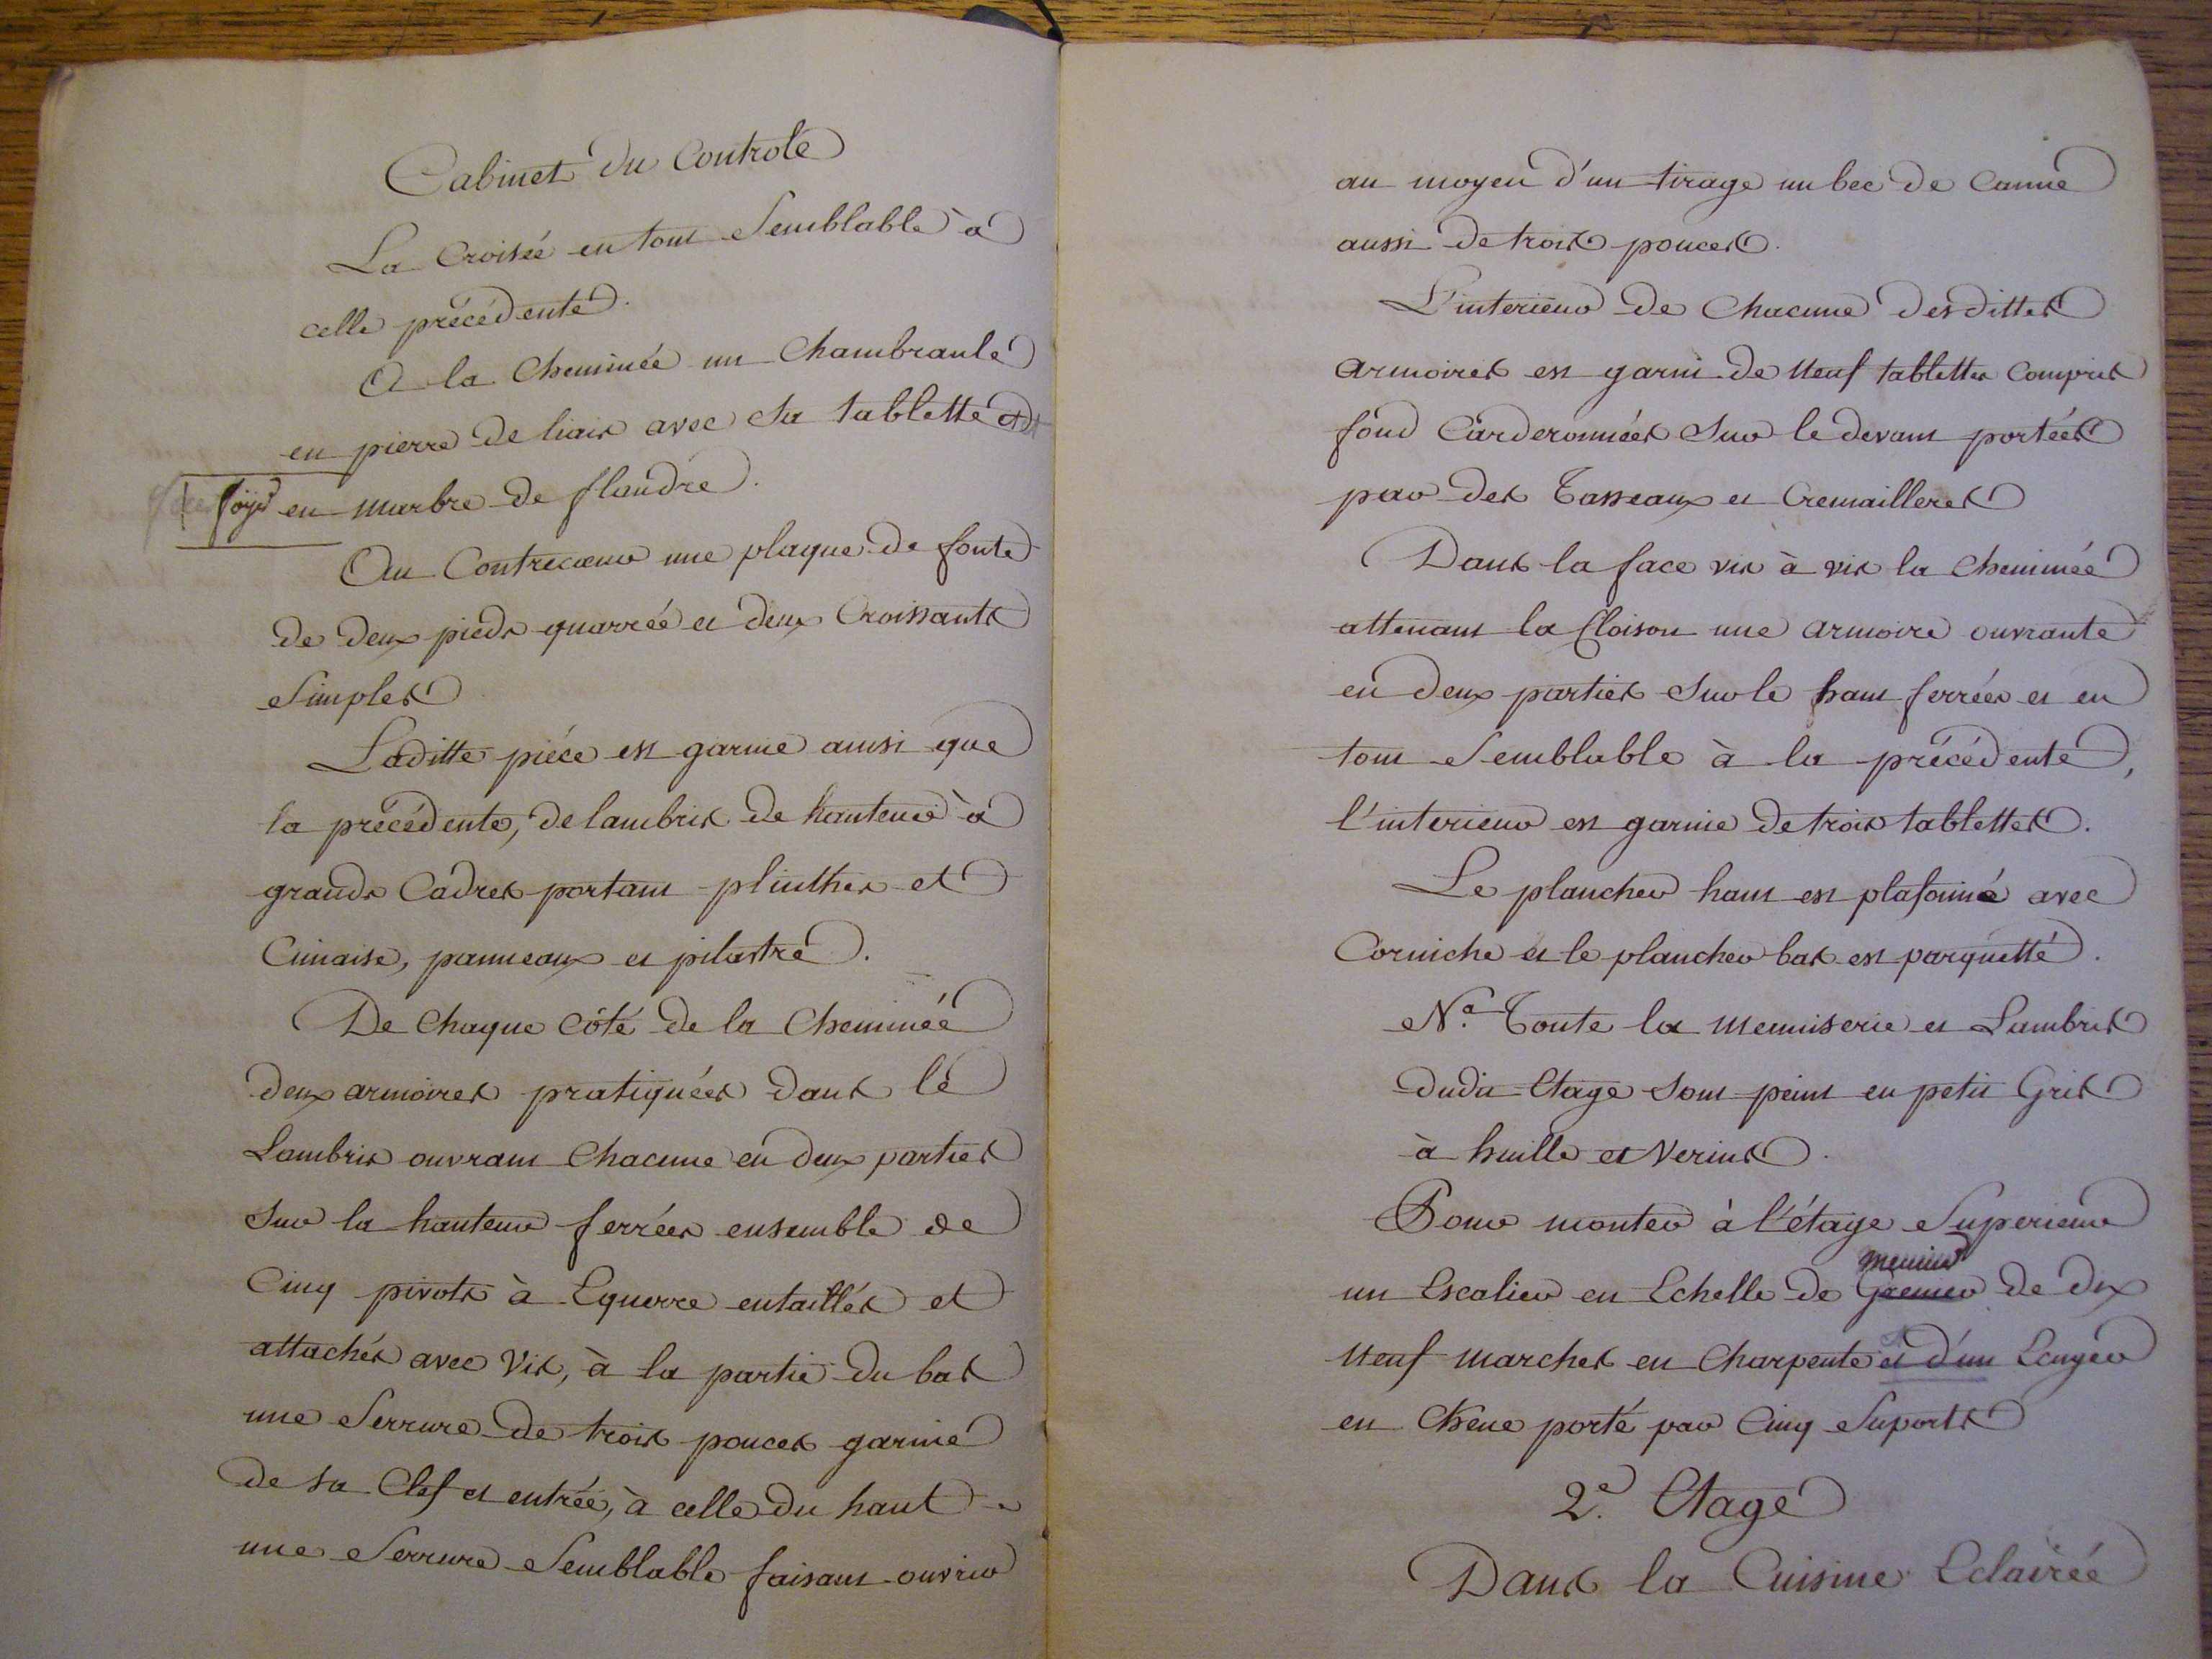 Cabinet du Controle
La Croisée en tout Semblable à
celle précédente.
A la Cheminée un Chambranle
en pierre de liais avec Sa tablette et
foyé en marbre de flandre.
Au Contrecœur une plaque de fonte
de deux pieds quarrée et deux Croissants
Simples
Laditte piéce est garnie ainsi que
la précédente, de lambris de hauteur à
grands Cadres portant plinthes et
Cimaise, panneaux et pilastre.
De Chaque Côté de la Cheminée
deux armoires pratiquées dans le
Lambris ouvrant Chacune en deux parties
Sur la hauteur ferrées ensemble de
Cinq pivots à Equerre entaillés et
attachés avec Vis, à la partie du bas
une Serrure de trois pouces garnie
de sa Clef et entrée, à celle du haut
une Serrure Semblable faisant ouvrir
au moyen d'un tirage un bec de Canne
aussi de trois pouces.
L'interieur de Chacune desdittes
armoires est garni de Neuf tablettes Compris
fond Carderonnées Sur le devant portées
par des Tasseaux et Cremailleres
Dans la face vis à vis la Cheminée
attenant la Cloison une armoire ouvrante
en deux parties Sur le haut ferrées et en
tout Semblable à la précédente,
l'interieur est garnie de trois tablettes.
Le plancher haut est plafonné avec
Corniche et le plancher bas est parquetté.
Nª. Toute la Menuiserie et Lambris
dudit Etage Sont peint en petit Gris
à huille et Vernis.
Pour monter à l'étage Superieur
meunier
un Escalier en Echelle de Grenier de dix
Neuf Marches en Charpente et d'un Ecuyer
en Chene porté par Cinq Suports
2.e Etage
Dans la Cuisine Eclairée